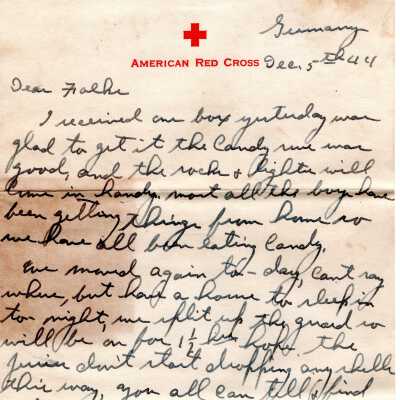 Germany
AMERICAN RED CROSS Dec. 5th 44
Dear Folks
I received one box yesterday was
glad to get it the Candy sure was
good, and the socks & lighter will
Come in handy. most all the boys have
been getting things from home so
we have all been eating Candy.
We moved again to-day, cant say
where, but have a home to sleep in
to night, we split up the guard so
will be on for 1½ hrs hope the
don't start dropping any shells
this way, you all can tell & find